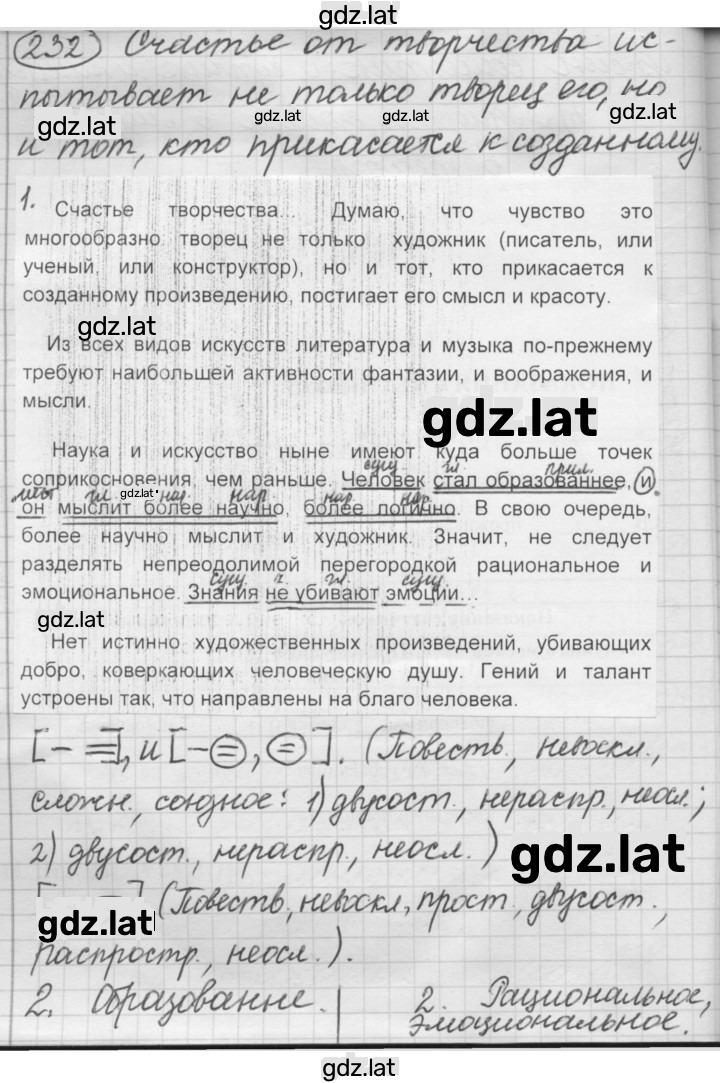 gdz.lat
232 Счастье от творчества ис-
пытывает не только творец его, но
gdz.lat gdz.lat gdz.lat
и тот, кто прикасается к созданному.
1. Счастье творчества... Думаю, что чувство это
многообразно творец не только художник (писатель, или
ученый, или конструктор), но и тот, кто прикасается к
созданному произведению, постигает его смысл и красоту.
gdz.lat
Из всех видов искусств литература и музыка по-прежнему
требуют наибольшей активности фантазии, и воображения, и
мысли.
gdz.lat
Наука и искусство ныне имеют куда больше точек
сущ. гл. прил.
соприкосновения, чем раньше. Человек стал образованнее, и
мест. гл. gdz.lat нар. нар. нар. нар.
он мыслит более научно, более логично. В свою очередь,
более научно мыслит и художник. Значит, не следует
разделять непреодолимой перегородкой рациональное и
сущ. ч. гл. сущ.
эмоциональное. Знания не убивают эмоции...
gdz.lat gdz.lat
Нет истинно художественных произведений, убивающих
добро, коверкающих человеческую душу. Гений и талант
устроены так, что направлены на благо человека.
[– =], и [– =, =]. (Повеств., невоскл.,
сложн., союзное: 1) двусост., нераспр., неосл.;
2) двусост., нераспр., неосл.)
gdz.lat
[ ] (Повеств., невоскл., прост., двусост.,
gdz.lat
распростр., неосл.).
2. Образование. | 2. Рациональное,
эмоциональное.
gdz.lat